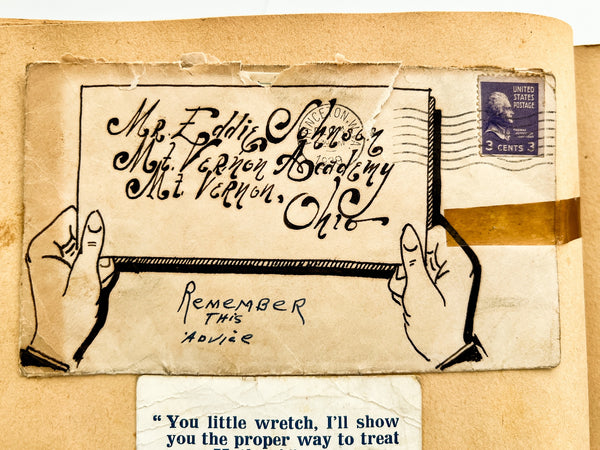 Mr. Eddie Johnson
Mt. Vernon Academy
Mt Vernon,
Ohio
UNITED
STATES
POSTAGE
3 CENTS 3
Remember
This
Advice
"You little wretch, I'll show
you the proper way to treat